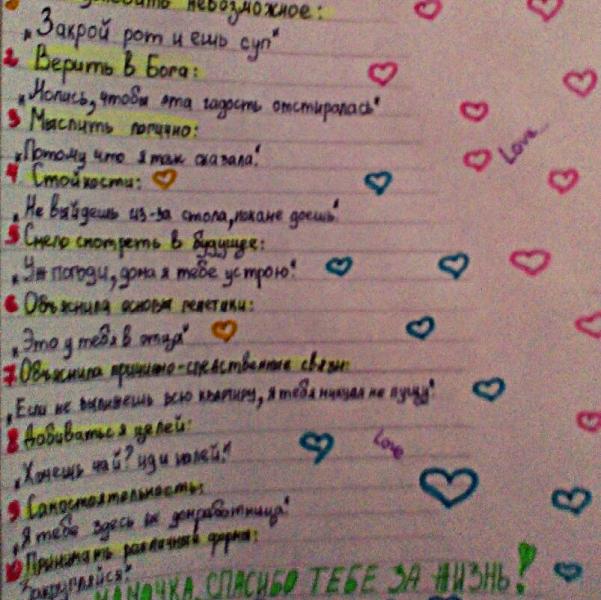 невозможное:
„Закрой рот и ешь суп"
2 Верить в Бога:
„Молись, чтобы эта гадость отстиралась"
3 Мыслить логично:
„Потому что я так сказала!"
4 Стойкости:
„Не выйдешь из-за стола, пока не доешь"
5 Смело смотреть в будущее:
„Уж погоди, дома я тебе устрою!"
6 Объяснила основы генетики:
„Это у тебя в отца"
7 Объяснила причинно-следственные связи:
„Если не вылижешь всю квартиру, я тебя никуда не пущу!"
8 Добиваться целей:
„Хочешь чай? иди и налей!"
9 Самостоятельность:
„Я тебе здесь не домработница!"
10 Принимать различный формы:
Закругляйся!"
МАМОЧКА, СПАСИБО ТЕБЕ ЗА ЖИЗНЬ!
Love...
Love